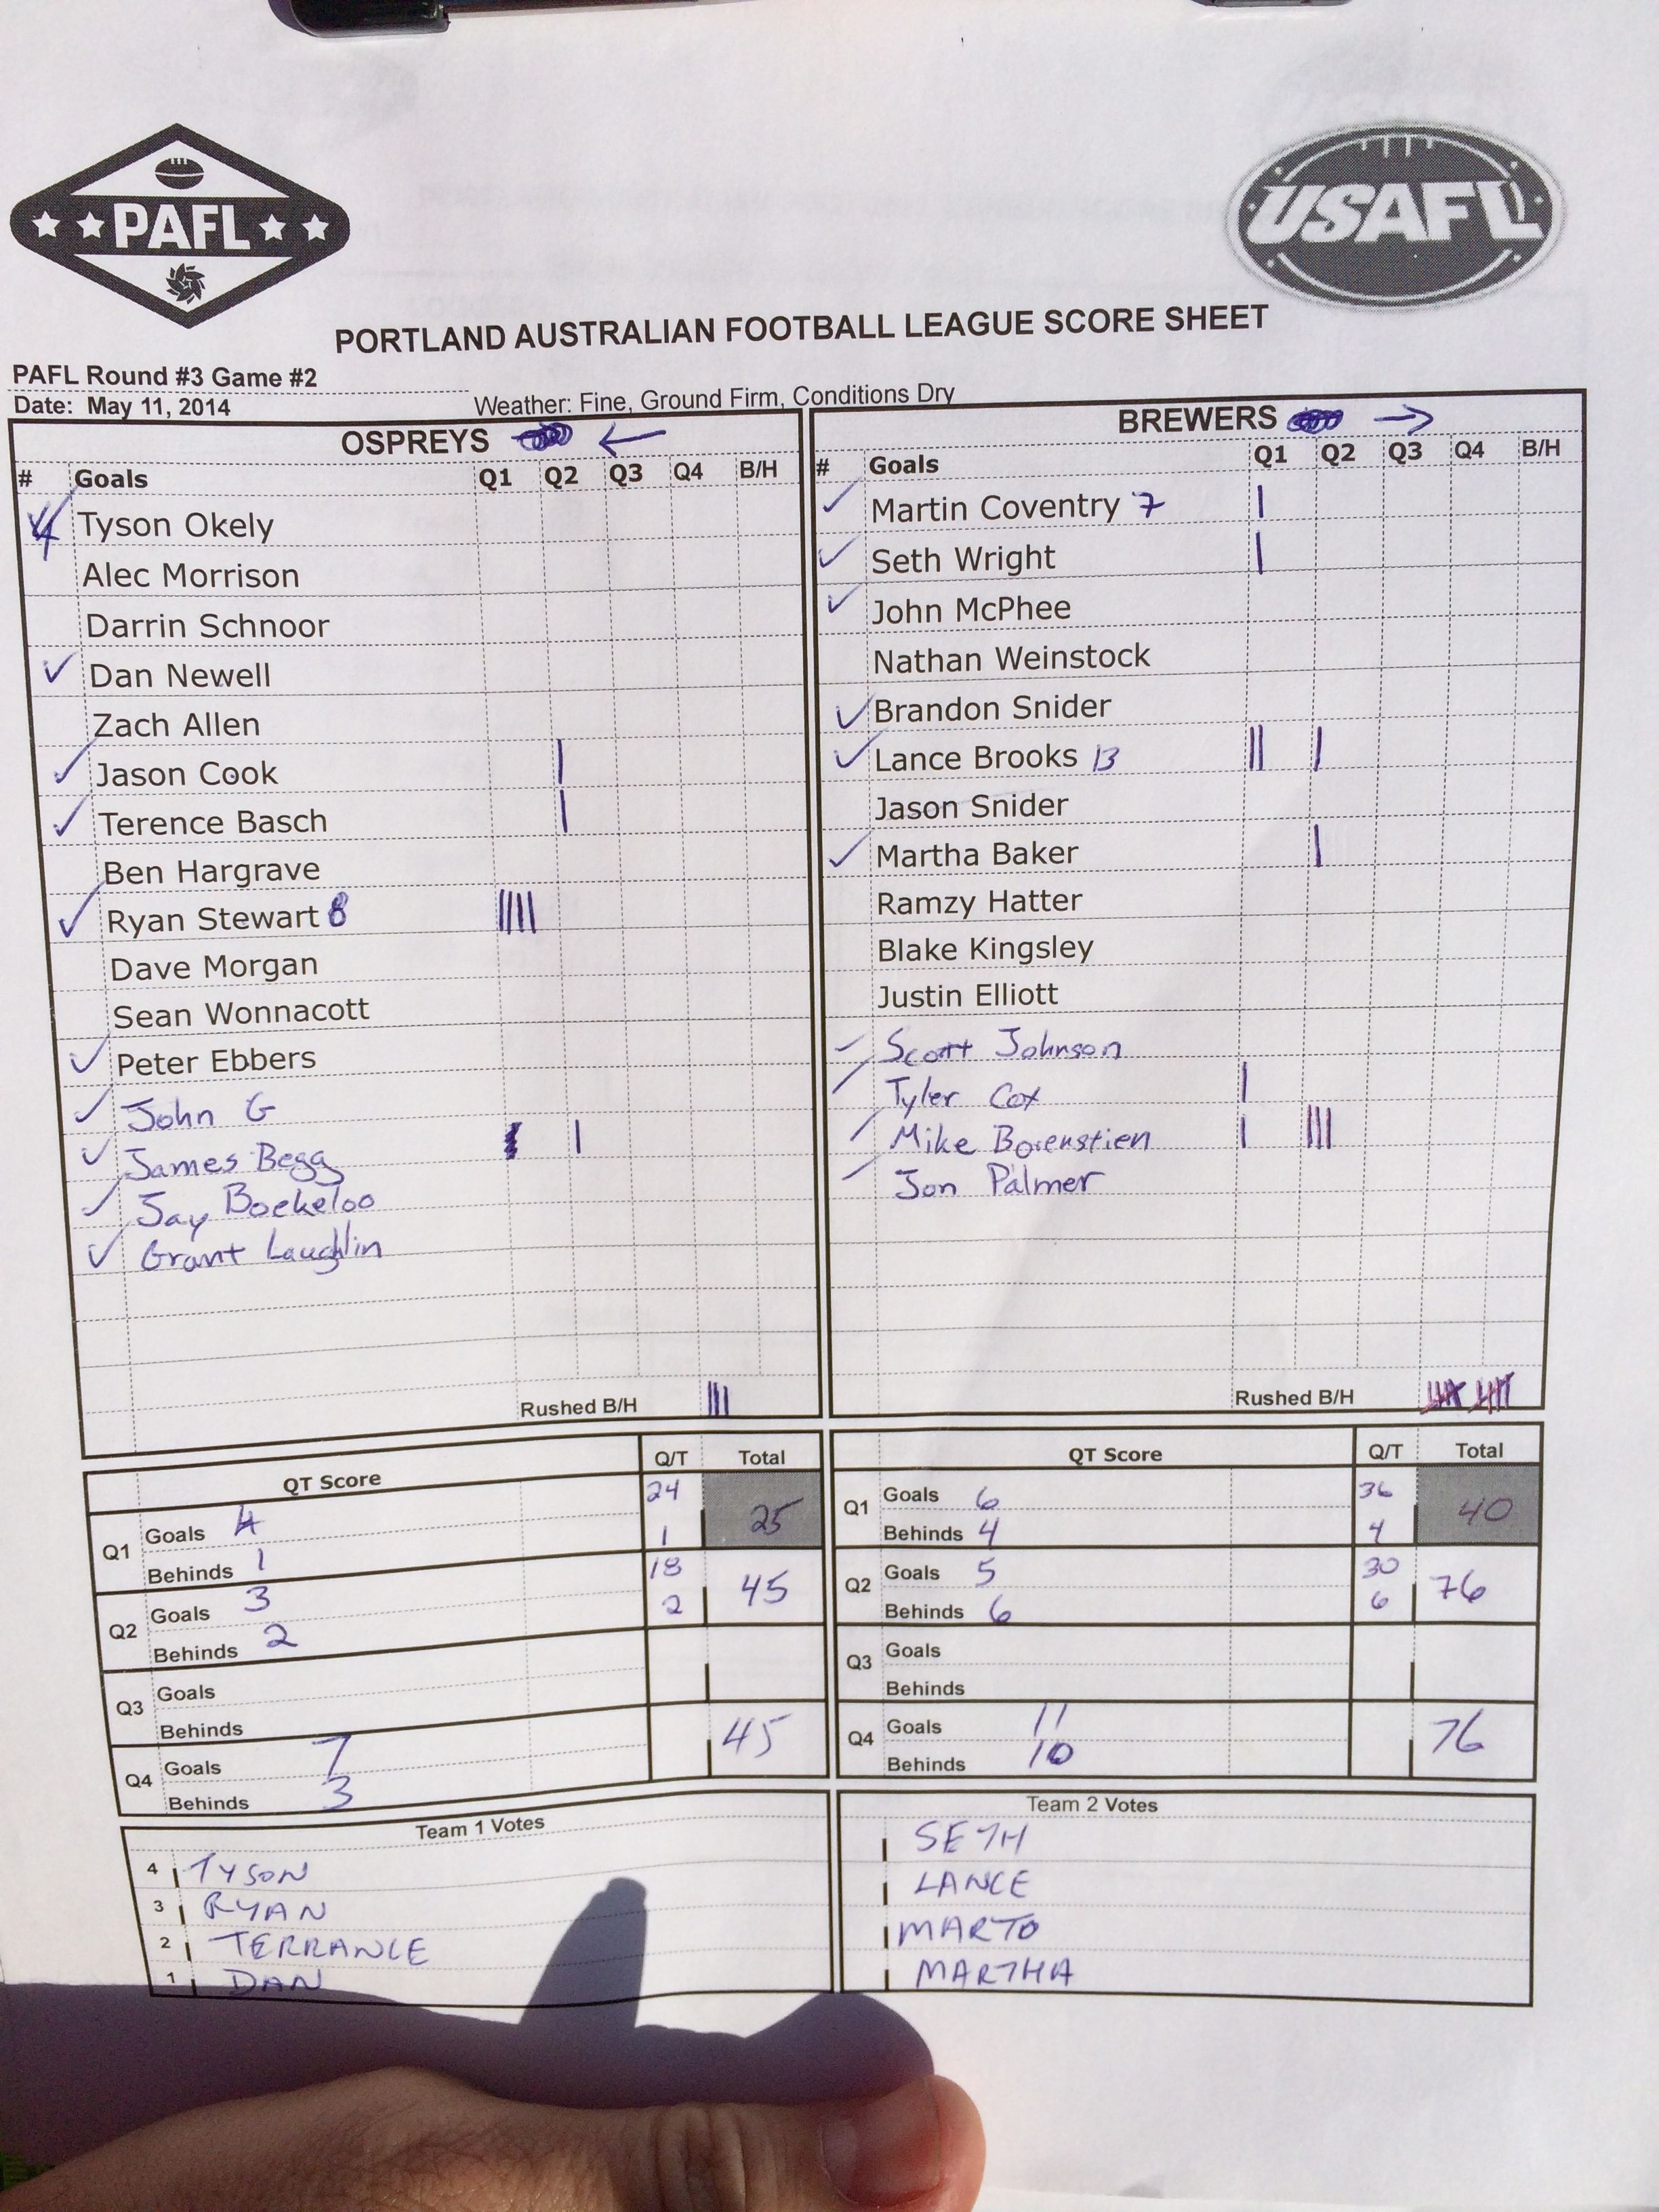 PAFL
USAFL
PORTLAND AUSTRALIAN FOOTBALL LEAGUE SCORE SHEET
PAFL Round #3 Game #2
Date: May 11, 2014 Weather: Fine, Ground Firm, Conditions Dry
OSPREYS ←
# Goals Q1 Q2 Q3 Q4 B/H
Tyson Okely
Alec Morrison
Darrin Schnoor
✓ Dan Newell
Zach Allen
✓ Jason Cook |
✓ Terence Basch |
Ben Hargrave
✓ Ryan Stewart 8 ||||
Dave Morgan
Sean Wonnacott
✓ Peter Ebbers
✓ John G
✓ James Begg |
✓ Jay Boekeloo
✓ Grant Laughlin
Rushed B/H |||
BREWERS →
# Goals Q1 Q2 Q3 Q4 B/H
✓ Martin Coventry 7 |
✓ Seth Wright |
✓ John McPhee
Nathan Weinstock
✓ Brandon Snider
✓ Lance Brooks 13 || |
Jason Snider
✓ Martha Baker |
Ramzy Hatter
Blake Kingsley
Justin Elliott
✓ Scott Johnson
✓ Tyler Cox |
✓ Mike Borenstien | |||
✓ Jon Palmer
Rushed B/H
QT Score Q/T Total
Q1 Goals 4 24
Behinds 1 1 25
Q2 Goals 3 18
Behinds 2 2 45
Q3 Goals
Behinds
Q4 Goals 7 45
Behinds 3
QT Score Q/T Total
Q1 Goals 6 36
Behinds 4 4 40
Q2 Goals 5 30
Behinds 6 6 76
Q3 Goals
Behinds
Q4 Goals 11 76
Behinds 10
Team 1 Votes
4 TYSON
3 RYAN
2 TERRANCE
1 DAN
Team 2 Votes
SETH
LANCE
MARTO
MARTHA